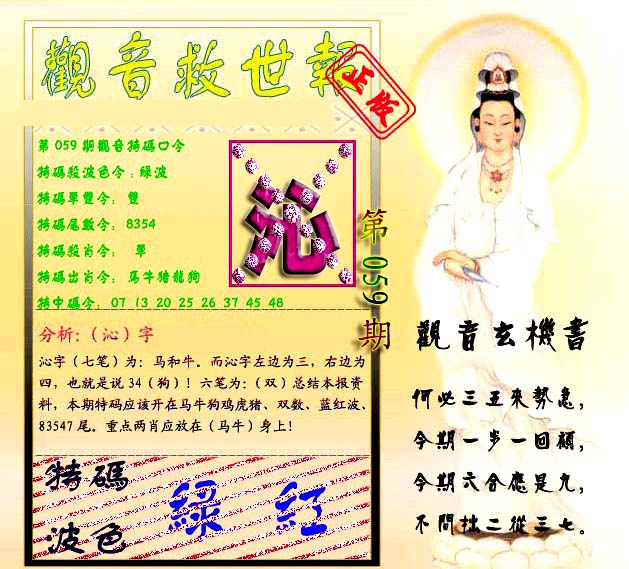 觀音救世報
正版
第059期觀音特碼口令
特碼殺波色令：綠波
特碼單雙令： 雙
特碼尾數令： 8354
特碼殺肖令： 單
特碼出肖令： 馬牛猪龍狗
特中碼令： 07 13 20 25 26 37 45 48
沁
第059期
分析：（沁）字
沁字（七笔）为：马和牛。而沁字左边为三，右边为
四，也就是说 34（狗）！六笔为：（双）总结本报资
料，本期特码应该开在马牛狗鸡虎猪、双数、蓝红波、
83547 尾。重点两肖应放在（马牛）身上！
特碼
波色
綠 紅
觀音玄機書
何必三五來勢急，
今期一步一回頭，
今期六合應是九，
不問拙二從三七。